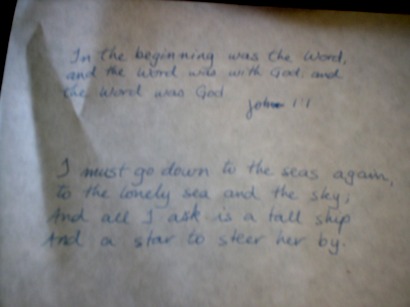 In the beginning was the Word,
and the Word was with God, and
the Word was God
John 1:1
I must go down to the seas again,
to the lonely sea and the sky;
And all I ask is a tall ship
And a star to steer her by.